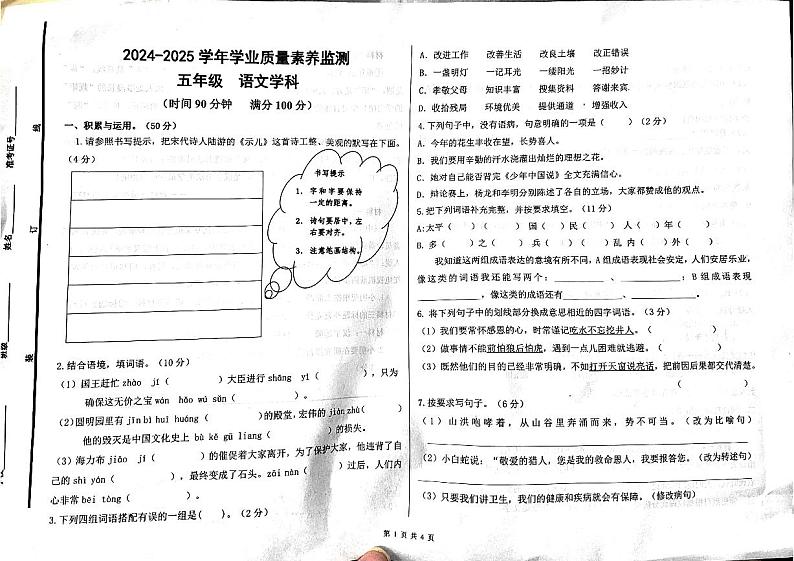 准考证号
姓名
班级
线
订
装
2024-2025 学年学业质量素养监测
五年级 语文学科
（时间 90 分钟 满分 100 分）
一、积累与运用。（50 分）
1.请参照书写提示，把宋代诗人陆游的《示儿》这首诗工整、美观的默写在下面。
（4 分）
书写提示
1. 字和字要保持
一定的距离。
2. 诗句要居中，左
右要对齐。
3. 注意笔画结构。
2.结合语境，填词语。（10 分）
（1）国王赶忙 zhào jí（ ）大臣进行 shāng yì（ ），只为
确保这无价之宝 wán hǎo wú sǔn（ ）。
（2）圆明园里有 jīn bì huī huáng（ ）的殿堂，宏伟的 jiàn zhù（ ）
他的毁灭是中国文化史上 bù kě gū liang（ ）的损失。
（3）海力布 jiāo jí（ ）的催促着大家离开，为了保护大家，他违背了自
己的 shì yán（ ），最终变成了石头。zāi nàn（ ）过后，人们内
心非常 bēi tòng（ ）。
3.下列四组词语搭配有误的一组是（ ）。（2 分）
A. 改进工作 改善生活 改良土壤 改正错误
B. 一盏明灯 一记耳光 一缕阳光 一招妙计
C. 孝敬父母 知识丰富 搜集资料 答谢来宾
D. 收拾残局 环境优美 提供通道 增强收入
4.下列句子中，没有语病，句意明确的一项是（ ）（2 分）
A. 今年的花生丰收在望，长势喜人。
B. 我们要用辛勤的汗水浇灌出灿烂的理想之花。
C. 她对自己能否背完《少年中国说》全文充满信心。
D. 辩论赛上，杨龙和李明分别陈述了各自的立场，大家都赞成他的观点。
5.把下列词语补充完整，并按要求填空。（11 分）
A:太平（ ）（ ） 国（ ）民（ ） 人（ ）年（ ）
B. 多（ ）之（ ） 兵（ ）（ ）乱 内（ ）外（ ）
我知道这两组成语表达的意境有所不同，A 组成语表现社会安定，人们安居乐业，
像这类的词语我还能写两个：____________、____________；B 组成语表现
____________，像这类的成语还有____________、____________。
6. 将下列句子中的划线部分换成意思相近的四字词语。（3 分）
（1）我们要常怀感恩的心，时常谨记吃水不忘挖井人。（ ）
（2）做事情不能前怕狼后怕虎，遇到一点儿困难就逃避。（ ）
（3）既然他们的目的已经非常明确，不如打开天窗说亮话，把前因后果都交代清楚。
（ ）
7. 按要求写句子。（6 分）
（1）山洪咆哮着，从山谷里奔涌而来，势不可当。（改为比喻句）
（2）小白蛇说：“敬爱的猎人，您是我的救命恩人，我要报答您。（改为转述句）
（3）只要我们讲卫生，我们的健康和疾病就会有保障。（修改病句）
第 1 页 共 4 页